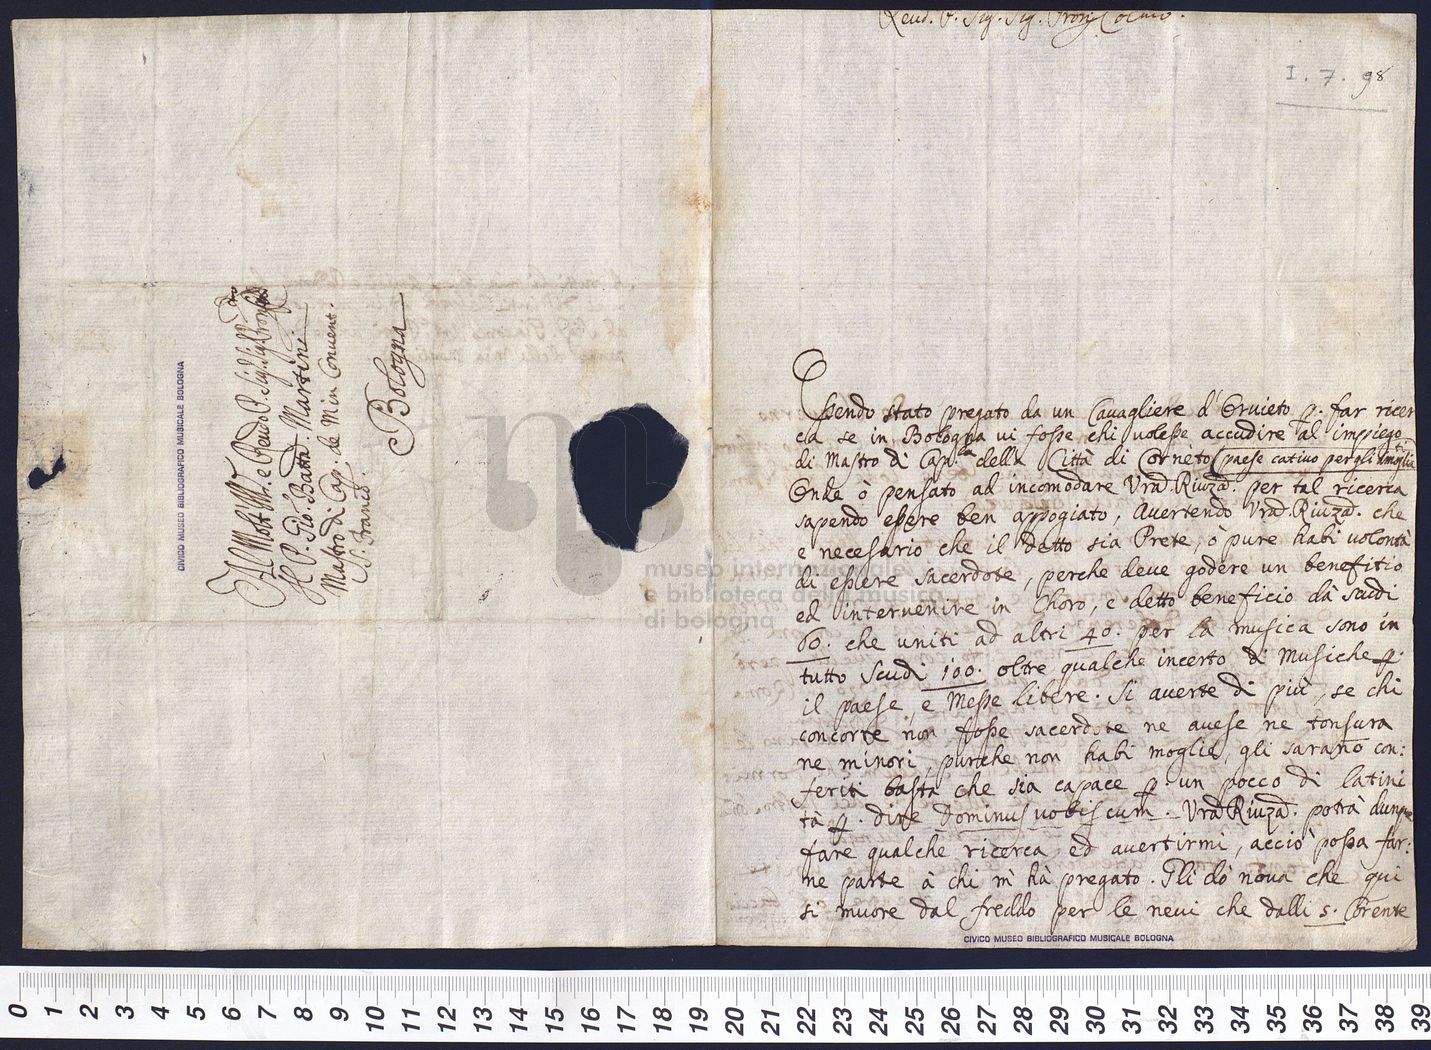 Al Molt Ill.re e Rendo P. Sig. Sig. Pron. Colmo
Il P. Gio: Batta. Martini
Mastro di Cap. de Min Convent.
S. Franco.
Bologna
CIVICO MUSEO BIBLIOGRAFICO MUSICALE BOLOGNA
Rend. P. Sig. Sig. Pron. Colmo.
I. 7. 98
Essendo stato pregato da un Cavagliere d'Orvieto p. far ricer
ca se in Bologna vi fosse chi volesse accudire al impiego
di Mastro di Cap.la della Città di Corneto (paese cativo per gli
Onde ò pensato ad incomodare Vrad. Riuza. per tal ricerca
sapendo essere ben appogiato, Avertendo Vrad. Riuza. che
e necessario che il detto sia Prete, ò pure habi volontà
di essere sacerdote, perche deve godere un benefitio
ed intervenire in Choro, e detto beneficio dà scudi
60. che uniti ad altri 40. per la musica sono in
tutto scudi 100. oltre qualche incerto di Musiche p.
il paese, e Messe libere. Si averte di più, se chi
concorte non fosse sacerdote ne avese ne tonsura
ne minori, purche non habi moglie, gli sarano con:
feriti basta che sia capace p. un pocco di latini
tà p. dire Dominus vobiscum. Vrad. Riuza. potrà dunque
fare qualche ricerca, ed avertirmi, acciò possa far:
ne parte à chi m'hà pregato. Gli dò nova che qui
si muore dal freddo per le nevi che dalli s. Corente
CIVICO MUSEO BIBLIOGRAFICO MUSICALE BOLOGNA
museo internazionale
e biblioteca della musica
di bologna
0 1 2 3 4 5 6 7 8 9 10 11 12 13 14 15 16 17 18 19 20 21 22 23 24 25 26 27 28 29 30 31 32 33 34 35 36 37 38 39